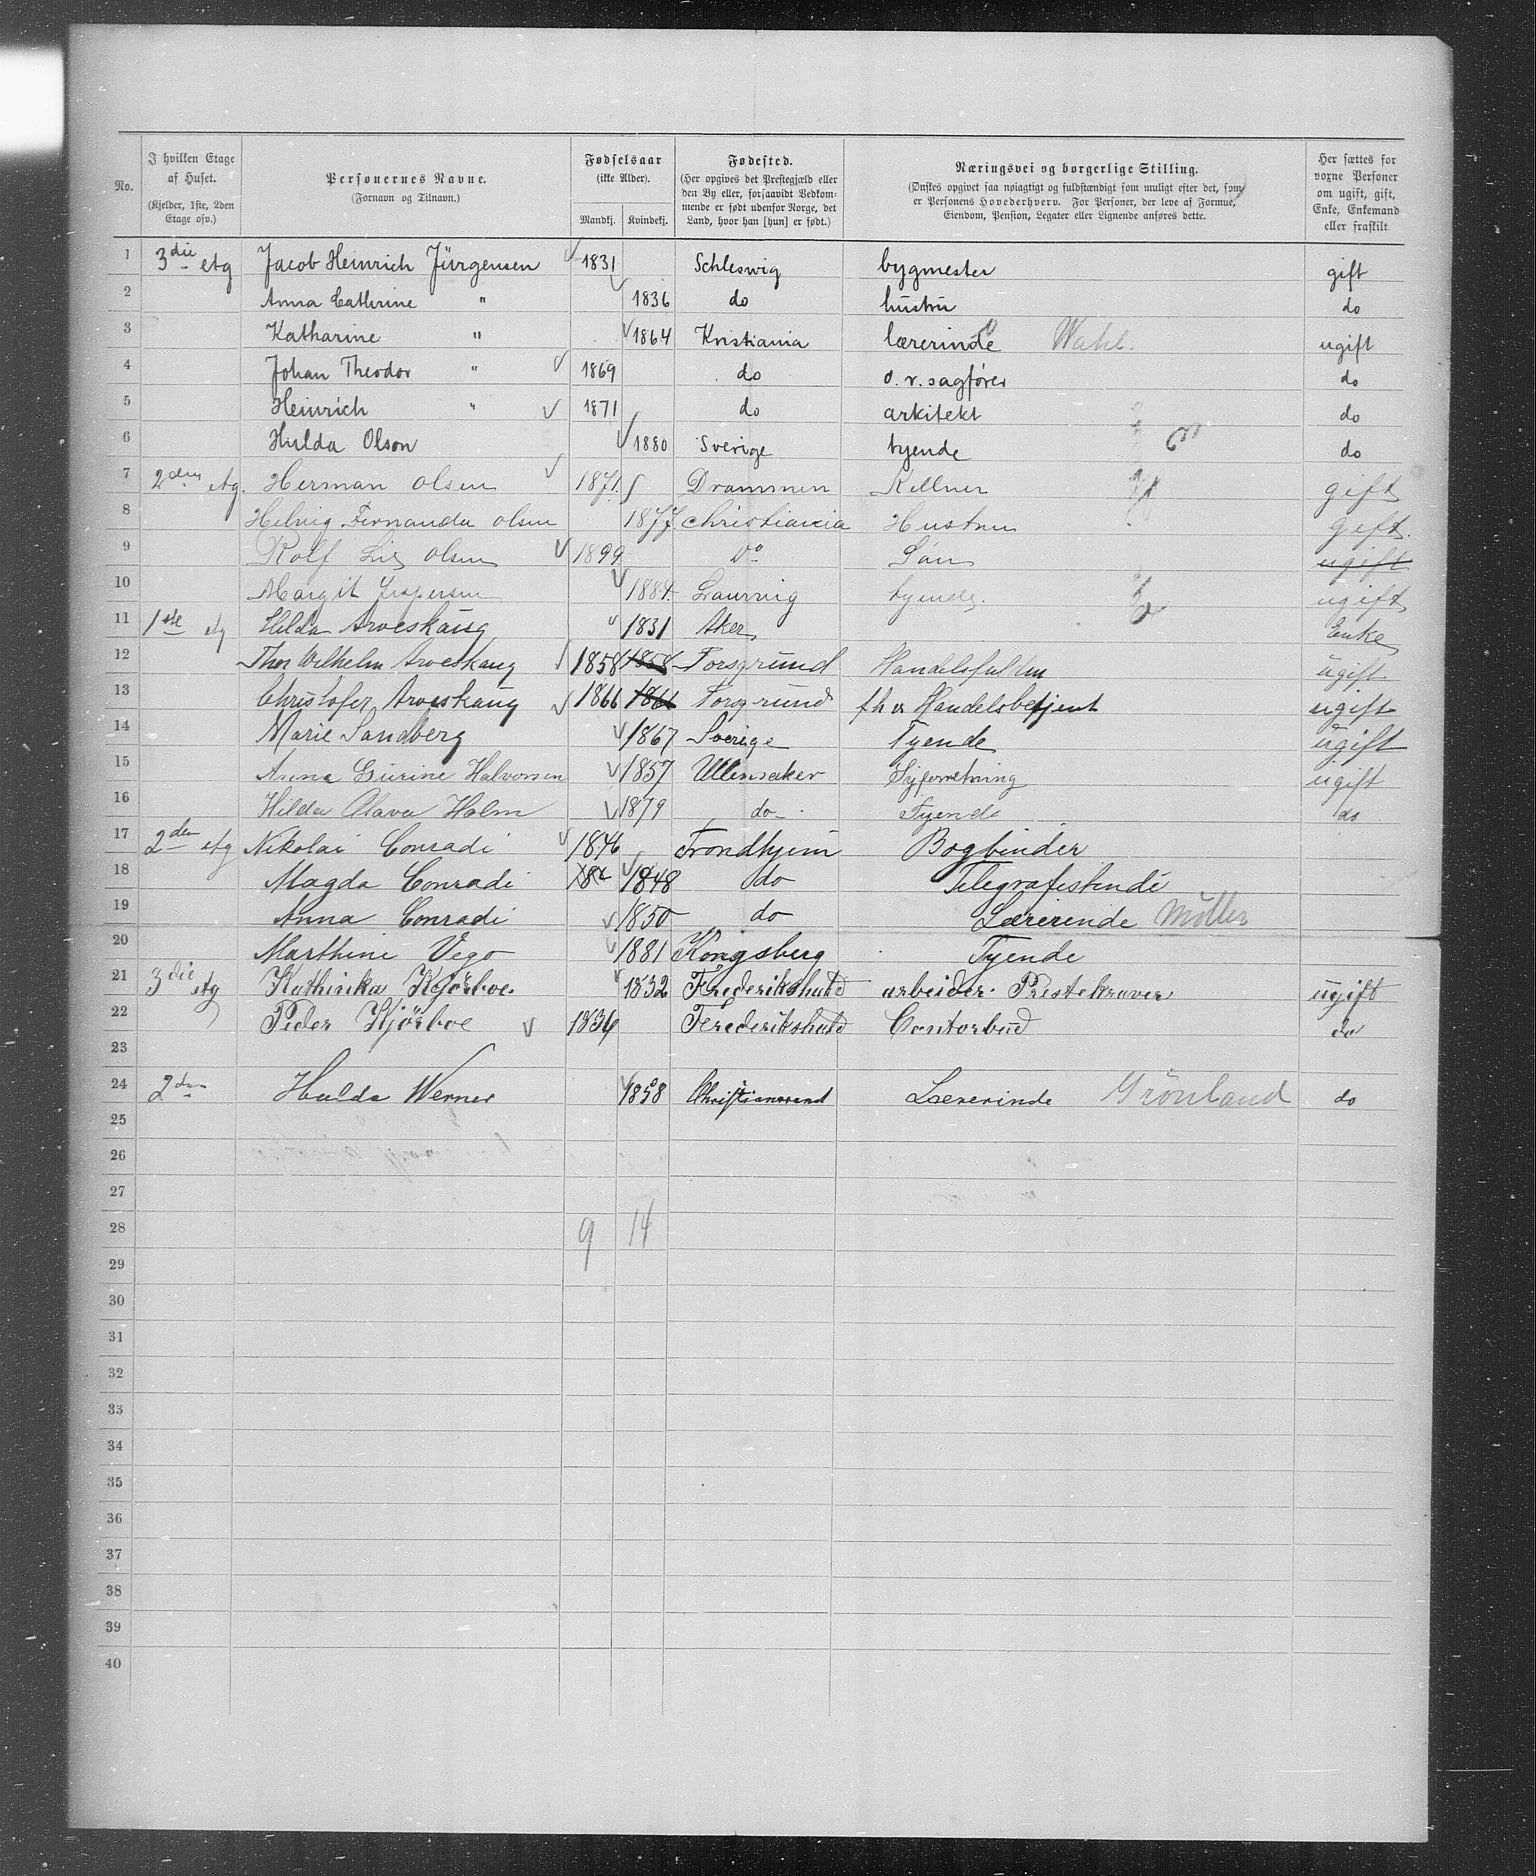 No. I hvilken Etage af Huset. (Kjelder, 1ste, 2den Etage osv.) Personernes Navne. (Fornavn og Tilnavn.) Fødselsaar (ikke Alder). Mandkj. Kvindekj. Fødested. (Her opgives det Prestegjæld eller den By eller, forsaavidt Vedkommende er født udenfor Norge, det Land, hvor han [hun] er født.) Næringsvei og borgerlige Stilling. (Ønskes opgivet saa nøiagtigt og fuldstændigt som muligt efter det, som er Personens Hovederhverv. For Personer, der leve af Formue, Eiendom, Pension, Legater eller Lignende anføres dette. Her sættes for voxne Personer om ugift, gift, Enke, Enkemand eller fraskilt
1 3die etg Jacob Heinrich Jürgensen 1831 Schleswig bygmester gift
2 Anna Cathrine " 1836 do hustru do
3 Katharine " 1864 Kristiania lærerinde Wahl. ugift
4 Johan Theodor " 1869 do o. r. sagfører do
5 Heinrich " 1871 do arkitekt do
6 Hulda Olson 1880 Sverige tyende do
7 2den etg. Herman Olsen 1871. Drammen Kellner gift
8 Helvig Fernanda Olsen 1877 Christiania Hustru gift.
9 Rolf Lie Olsen 1899 Do Søn ugift
10 Margit Jespersen 1884. Laurvig tyende. ugift
11 1ste etg Hilda Arveskaug 1831 Aker Enke
12 Thor Wilhelm Arveskaug 1858 1858 Porsgrund ugift
13 Christofer Arveskaug 1866 1866 Porsgrund fhv Handelsbetjent ugift
14 Marie Sandberg 1867 Sverige Tyende ugift
15 Anna Gurine Halvorsen 1857 Ullensaker Syforretning ugift
16 Hilda Olava Holm 1879 do Tyende do
17 2den etg Nikolai Conradi 1846 Trondhjem Bogbinder
18 Magda Conradi 184 1848 do Telegrafistinde
19 Anna Conradi 1850 do Lærerinde Möller
20 Marthine Vego 1881 Kongsberg Tyende
21 3die etg Kathinka Kjörboe. 1832 Frederikshald arbeider Prestekraver ugift
22 Peder Kjörboe 1836 Frederikshald Contorbud do
23
24 2den Hulda Werner 1858 Christianssand Lærerinde Grönland do
25
26
27
28 9 14
29
30
31
32
33
34
35
36
37
38
39
40